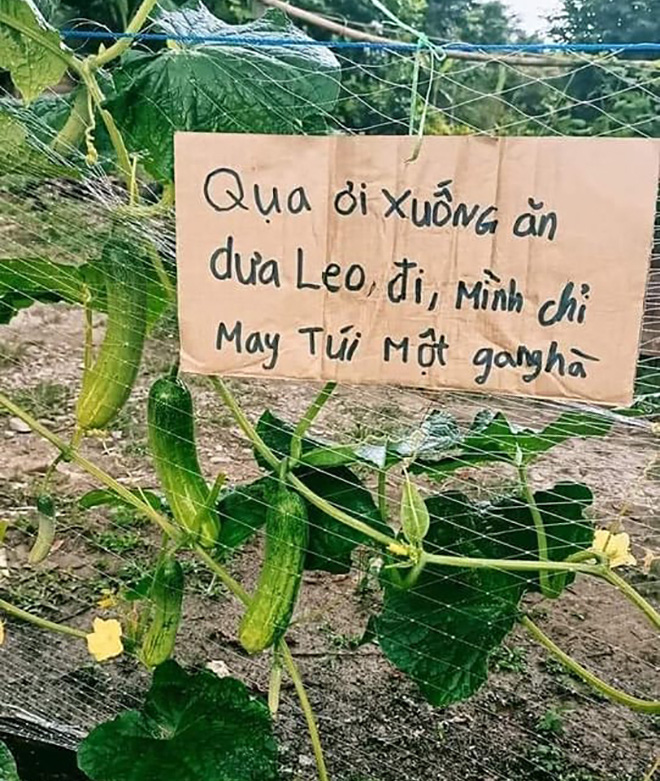 Quạ ơi xuống ăn
dưa Leo, đi, mình chỉ
May Túi Một ganghà